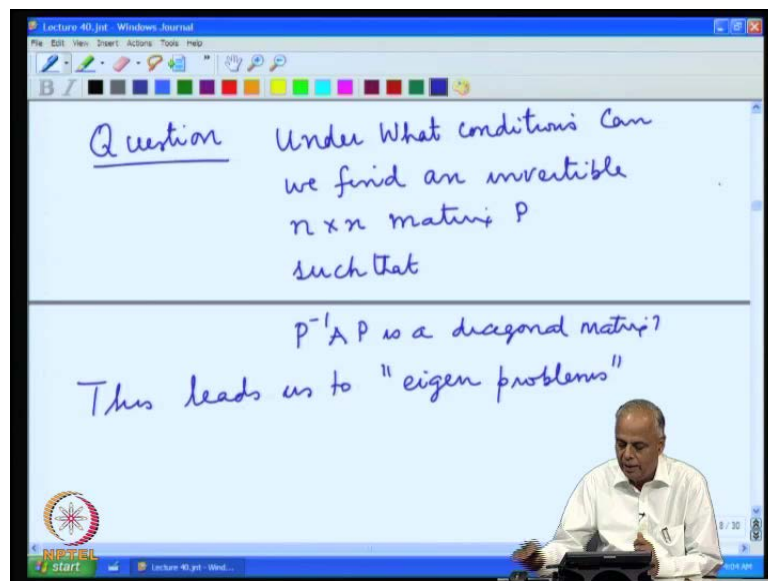 Lecture 40.jnt - Windows Journal
File Edit View Insert Actions Tools Help
B I
Question Under What conditions Can
we find an invertible
n x n matrix P
such that
P⁻¹AP is a diagonal matrix?
This leads us to "eigen problems"
8 / 30
NPTEL
start Lecture 40.jnt - Wind...
4:04 AM